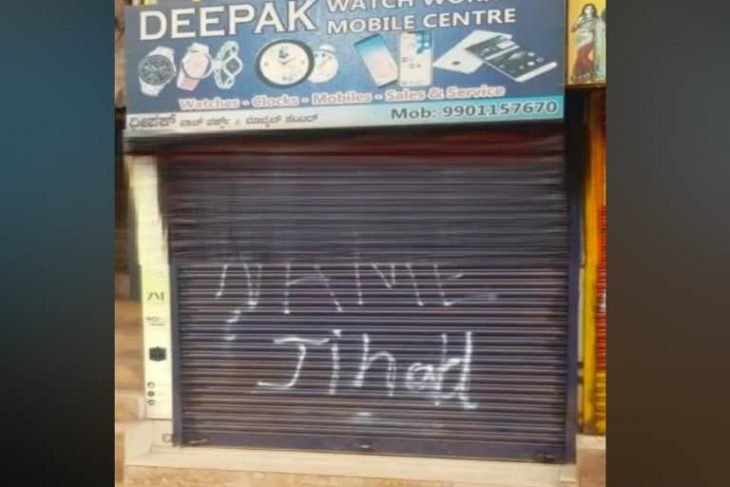 DEEPAK WATCH WORKS
MOBILE CENTRE
Watches - Clocks - Mobiles - Sales & Service
ದೀಪಕ್ ವಾಚ್ ವರ್ಕ್ಸ್ & ಮೊಬೈಲ್ ಸೆಂಟರ್
Mob: 9901157670
NAME
Jihad